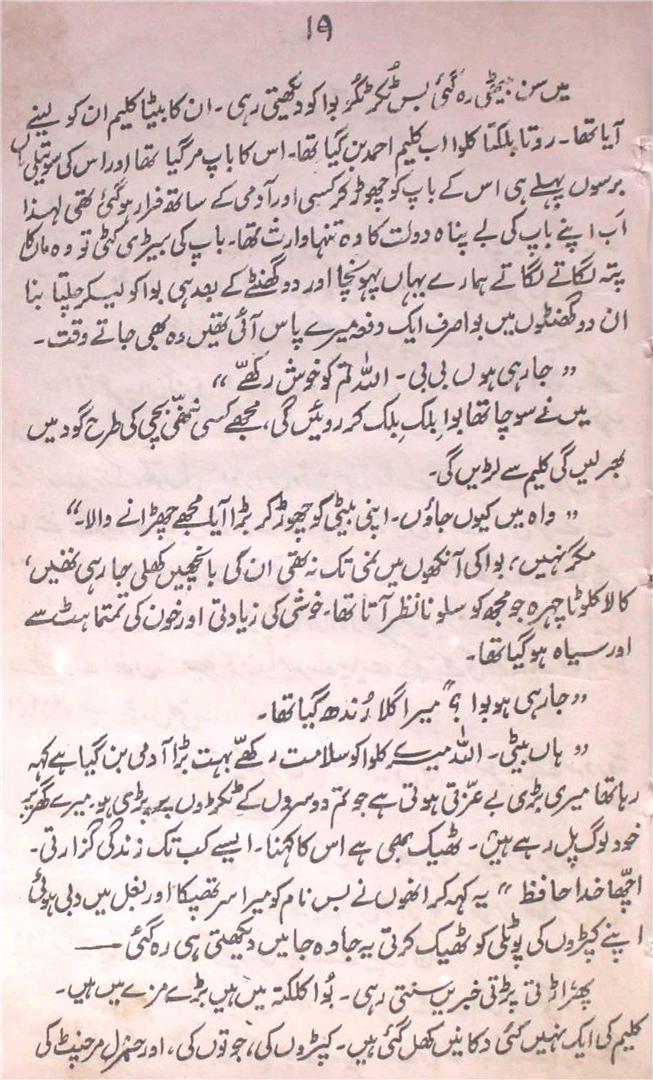 ۱۹
میں سن بیٹھی رہ گئی بس ٹُکر ٹُکر بوا کو دیکھتی رہی۔ ان کا بیٹا کلیم ان کو لینے
آیا تھا۔ روتا بلکتا کلوا اب کلیم احمد بن گیا تھا۔ اس کا باپ مر گیا تھا اور اس کی سوتیلی ماں
برسوں پہلے ہی اس کے باپ کو چھوڑ کر کسی اور آدمی کے ساتھ فرار ہو گئی تھی لہٰذا
اَب اپنے باپ کی بے پناہ دولت کا وہ تنہا وارث تھا۔ باپ کی بیڑی کٹی تو وہ ماں کا
پتہ لگاتے لگاتے ہمارے یہاں پہونچا اور دو گھنٹے کے بعد ہی بوا کو لیکر چلتا بنا
ان دو گھنٹوں میں بوا صرف ایک دفعہ میرے پاس آئی تھیں وہ بھی جاتے وقت۔
”جا رہی ہوں بی بی۔ اللہ تم کو خوش رکھّے“
میں نے سوچا تھا بوا بلک بلک کر روئیں گی، مجھے کسی ننھّی بچی کی طرح گود میں
بھر لیں گی کلیم سے لڑیں گی۔
”واہ میں کیوں جاؤں۔ اپنی بیٹی کو چھوڑ کر بڑا آیا مجھے چھڑانے والا۔“
مگر نہیں، بوا کی آنکھوں میں نمی تک نہ تھی ان کی بانچھیں کھلی جا رہی تھیں،
کالا کلوٹا چہرہ جو مجھ کو سلونا نظر آتا تھا۔ خوشی کی زیادتی اور خون کی تمتماہٹ سے
اور سیاہ ہو گیا تھا۔
”جا رہی ہو بوا؟“ میرا گلا رُندھ گیا تھا۔
”ہاں بیٹی۔ اللہ میرے کلوا کو سلامت رکھّے بہت بڑا آدمی بن گیا ہے کہہ
رہا تھا میری بڑی بے عزّتی ہوتی ہے جو تم دوسروں کے ٹکڑوں پر پڑی ہو۔ میرے گھر پر
خود لوگ پل رہے ہیں۔ ٹھیک بھی ہے اس کا کہنا۔ ایسے کب تک زندگی گزارتی۔
اچّھا خدا حافظ“ یہ کہہ کر انھوں نے بس نام کو میرا سر تھپکا اور بغل میں دبی ہوئی
اپنے کپڑوں کی پوٹلی کو ٹھیک کرتی یہ جا وہ جا میں دیکھتی ہی رہ گئی —
پھر اڑتی پڑتی خبریں سنتی رہی۔ بُوا کلکتہ میں ہیں بڑے مزے میں ہیں۔
کلیم کی ایک نہیں کئی دکانیں کھل گئی ہیں۔ کپڑوں کی، جوتوں کی، اور جنرل مرچنٹ کی